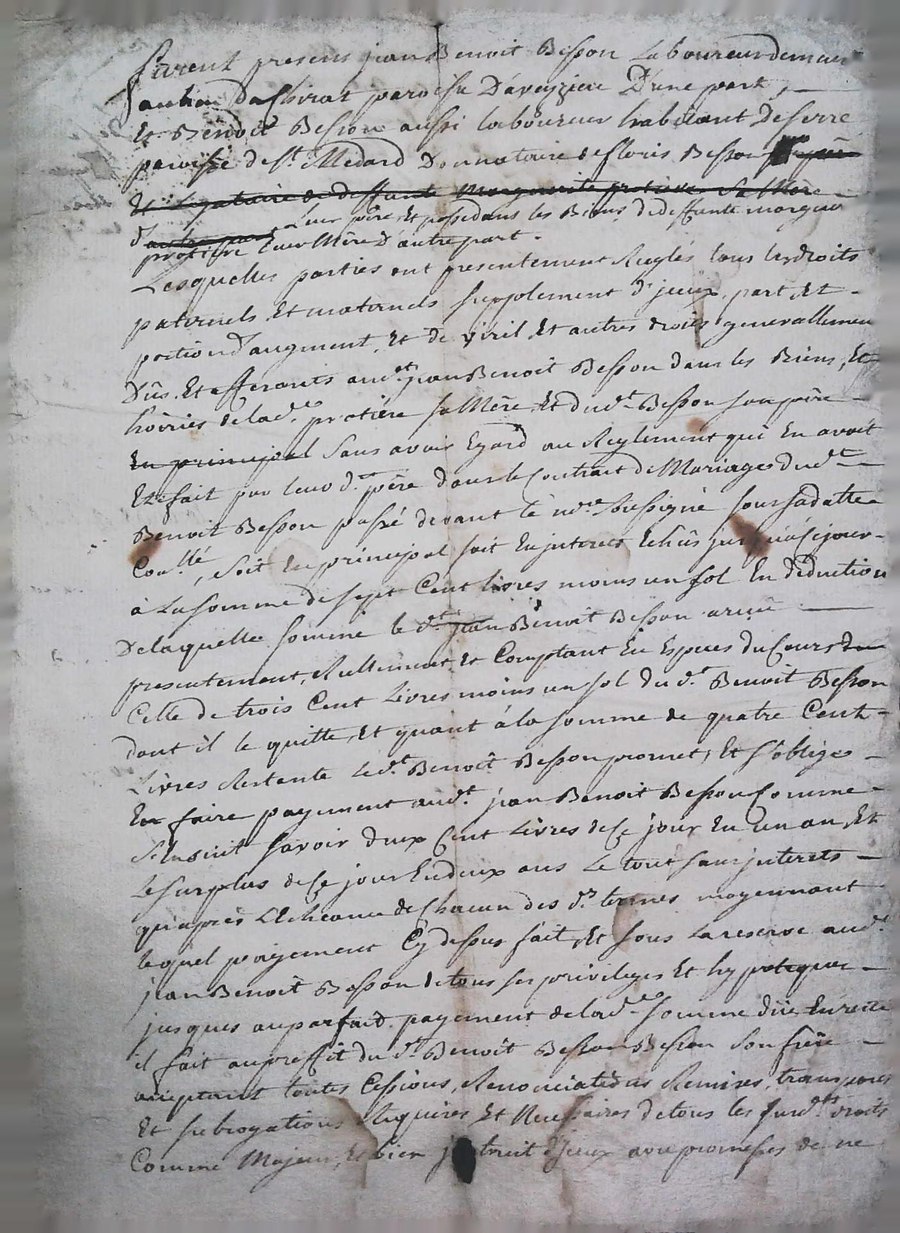 furent presens jean Benoit Besson Laboureur demeur
au lieu de Chirat paroisse D'aveizieu D'une part, —
Et Benoit Besson aussi laboureur habitant de serre
paroisse de St. Medard Donnatoire de floris Besson
Et Legataire de deffunte Marguerite protiere sa Mere
leur père, et possedans les Biens de deffunte margue
protiere leur Mère D'autre part.
Lesquelles parties ont presentement Reglés tous les droits
paternels Et maternels supplement d'jceux, part, Et -
portion d'augment, et de viril, Et autres droits generallement
Dûs, Et afferants aud.t jean Benoit Besson dans les Biens, Et
hoiries de lad.e protiere sa Mère, Et dud.t Besson son père -
En principal sans avoir Egard au Reglement qui En avoit
Eté fait par leur d.t père dans le Contrait de Mariage dud.t
Benoit Besson passé devant le no.re soussigné sous sa datte
Con.llé, soit En principal soit En jnterets Echûs jusqu'à ce jour -
à La somme de sept Cent livres moins un sol En déduction
De laquelle somme le d.t jean Benoit Besson a reçu —
presentement, Réellement Et Comptant En Especes du Cours
Celle de trois Cent Livres moins un sol du d.t Benoit Besson
dont il le quitte, Et quant à la somme de quatre Cent -
Livres Restante Led.t Benoit Besson promet, Et s'oblige -
En faire payement aud.t jean Benoit Besson Comme -
s'Ensuit savoir deux Cent Livres de Ce jour En un an, Et
Le surplus de Ce jour En deux ans Le tout sans jnterets -
qu'après L'Echeance de Chacun des d.ts termes moyennant
lequel payement Cy dessus fait, Et sous La reserve aud.t
jean Benoit Besson de tous ses privileges Et hypoteques -
jusques au parfait payement de lad.e somme düe En reste
il fait au proffit du d.t Benoit Besson Besson son frère -
acceptant toutes Cessions, Renonciations Remises, transports
Et subrogations Requises Et Necessaires de tous les sus d.ts droits
Comme Majeur, Et bien jnstruit d'jceux avec promesses de ne